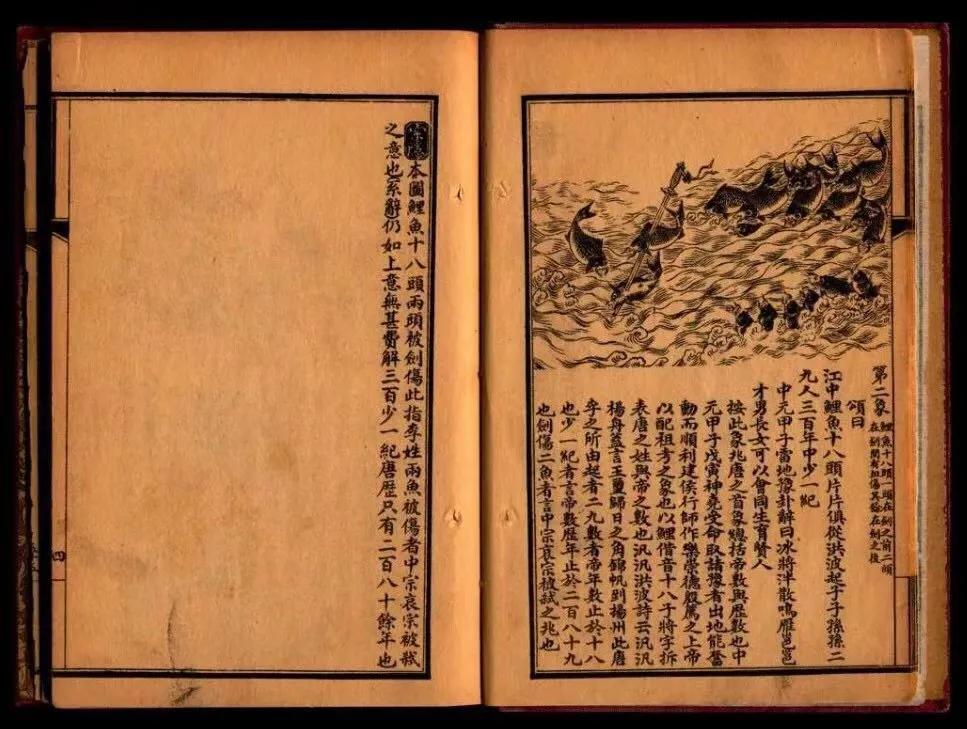 第二象
鯉魚十八頭一頭在劍之前二頭
在劍間有扭傷其餘在劍之後
頌曰
江中鯉魚十八頭片片俱從洪波起子子孫孫二
九人三百年中少一紀
中元甲子當地豫卦辭曰冰將泮散鳴雁邕邕
才男長女可以會同生育賢人
按此象兆唐之首象總括帝數與歷數也中
元甲子戊寅神堯受命取諸豫者出地能奮
動而順利建侯行師作樂崇德殷薦之上帝
以配祖考之象也以鯉借音十八子將字拆
表唐之姓與帝之數也汎汎洪波詩云汎汎
楊舟蓋言王璽歸日之角錦帆到揚州此唐
李之所由起者二九數者帝年數止於十八
也少一紀者言帝數歷年止於二百八十九
也劍傷二魚者言中宗哀宗被弒之兆也
本圖鯉魚十八頭兩頭被劍傷此指李姓兩魚被傷者中宗哀宗被弒
之意也系辭仍如上意無甚費解三百少一紀唐歷只有二百八十餘年也
四